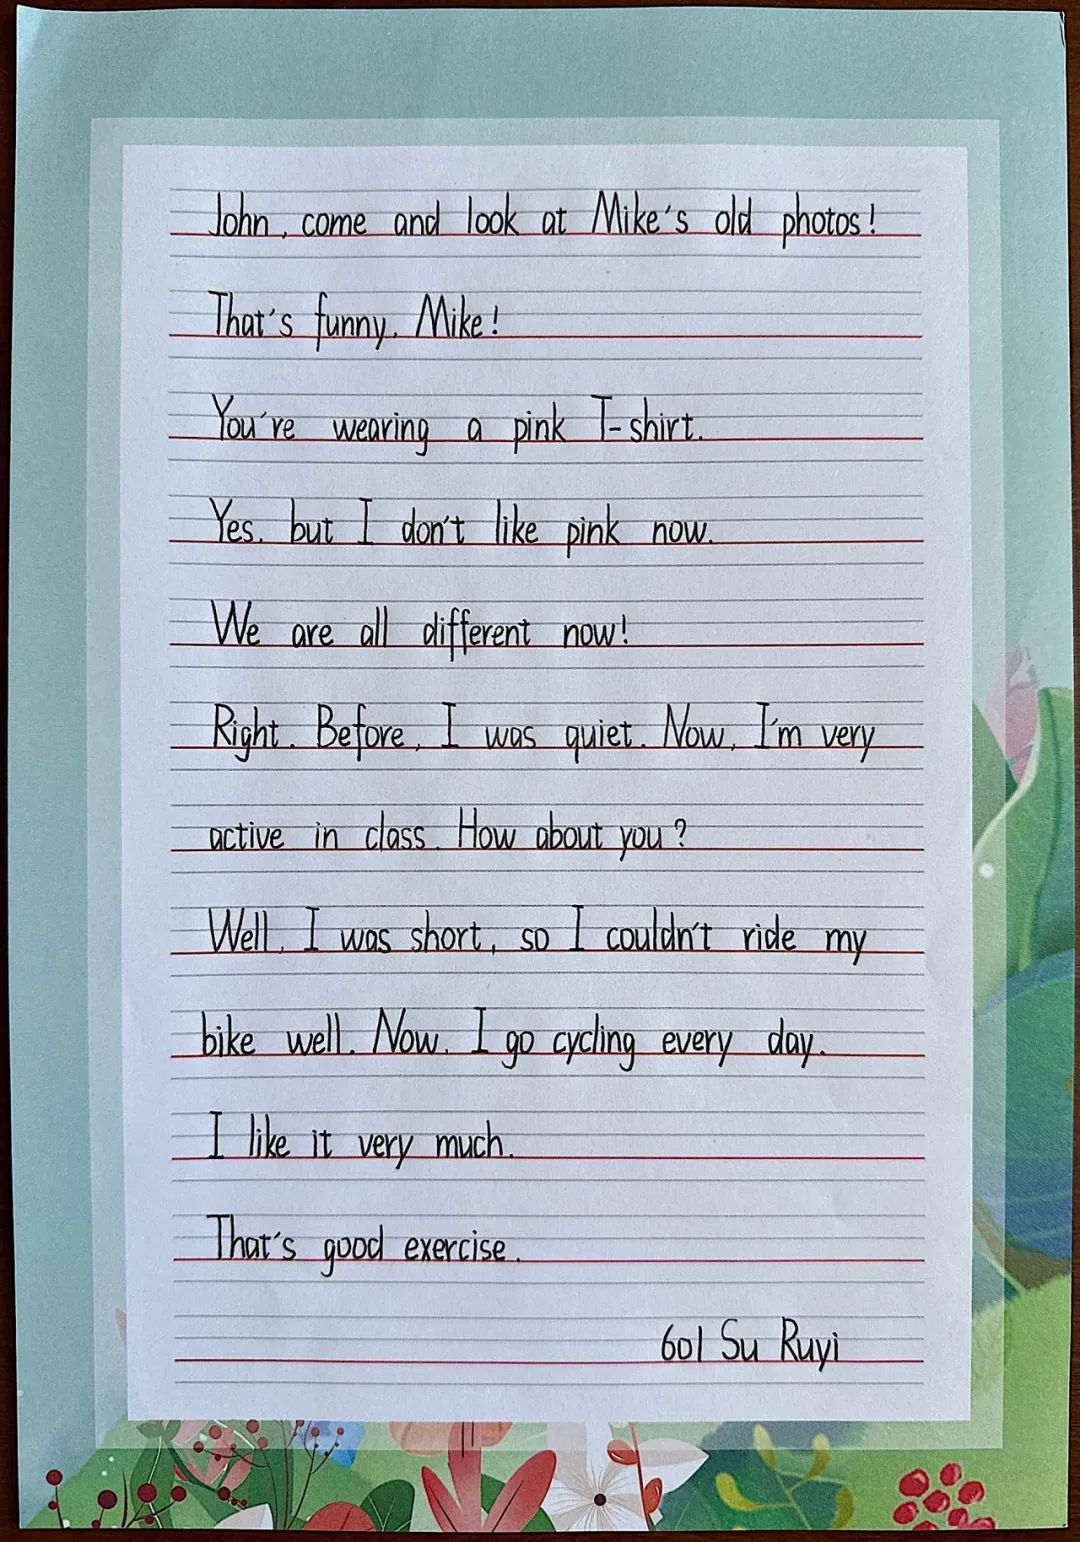 John, come and look at Mike's old photos!
That's funny, Mike!
You're wearing a pink T-shirt.
Yes, but I don't like pink now.
We are all different now!
Right. Before, I was quiet. Now, I'm very
active in class. How about you?
Well, I was short, so I couldn't ride my
bike well. Now, I go cycling every day.
I like it very much.
That's good exercise.
601 Su Ruyi